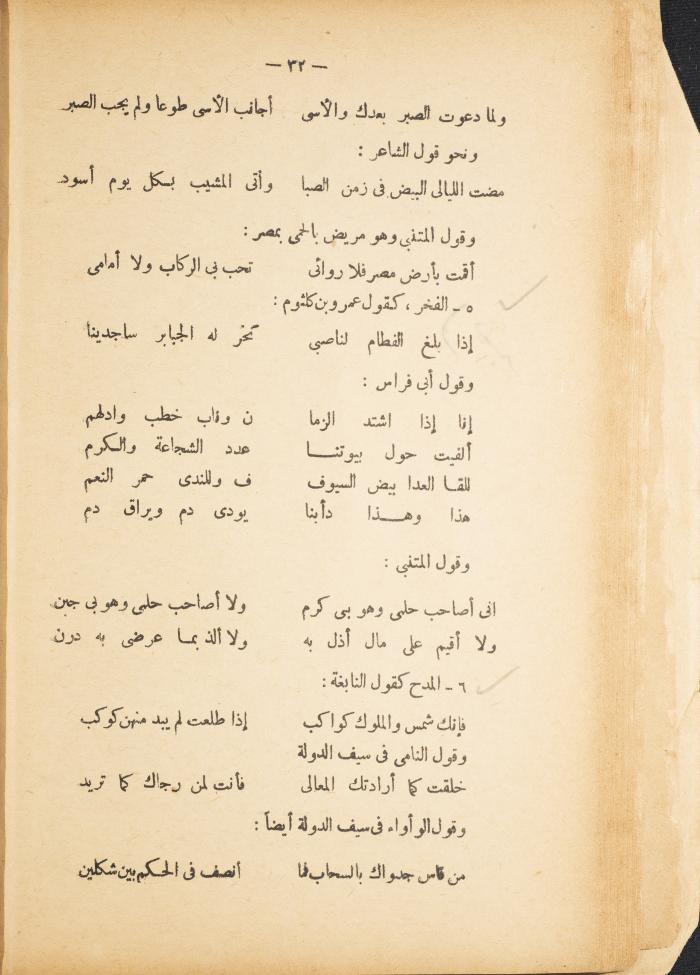 — ٣٢ —
ولما دعوت الصبر بعدك والأسى أجانب الأسى طوعا ولم يجب الصبر
ونحو قول الشاعر :
مضت الليالى البيض فى زمن الصبا وأتى المشيب بكل يوم أسود
وقول المتنبى وهو مريض بالحمى بمصر :
أقمت بأرض مصر فلا روائى تحب بى الركاب ولا أمامى
٥ ـ الفخر ، كقول عمرو بن كلثوم :
إذا بلغ الفطام لنا صبى تخر له الجبابر ساجدينا
وقول أبى فراس :
إنا إذا اشتد الزما ن وناب خطب وادلهم
ألفيت حول بيوتنا عدد الشجاعة والكرم
للقا العدا بيض السيوف ف وللندى حمر النعم
هذا وهذا دأبنا يودى دم ويراق دم
وقول المتنبى :
انى أصاحب حلمى وهو بى كرم ولا أصاحب حلمى وهو بى جبن
ولا أقيم على مال أذل به ولا ألذ بما عرضى به درن
٦ ـ المدح كقول النابغة :
فإنك شمس والملوك كواكب إذا طلعت لم يبد منهن كوكب
وقول النامى فى سيف الدولة
خلقت كما أرادتك المعالى فأنت لمن رجاك كما تريد
وقول الوأواء فى سيف الدولة أيضاً :
من قاس جدواك بالسحاب فما أنصف فى الحكم بين شكلين